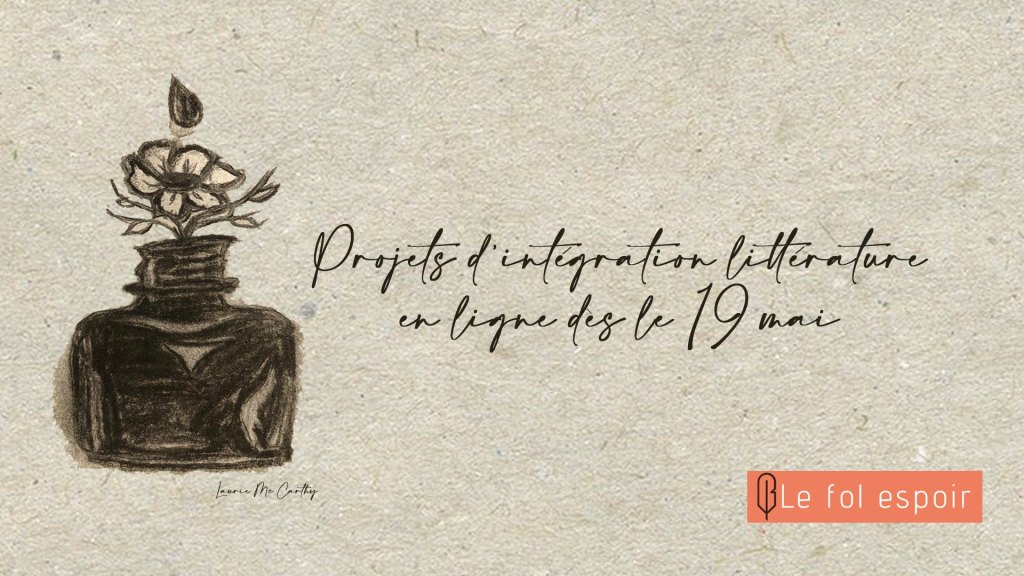 Projets d'intégration littérature
en ligne dès le 19 mai
Laurie Mc Carthy
Le fol espoir